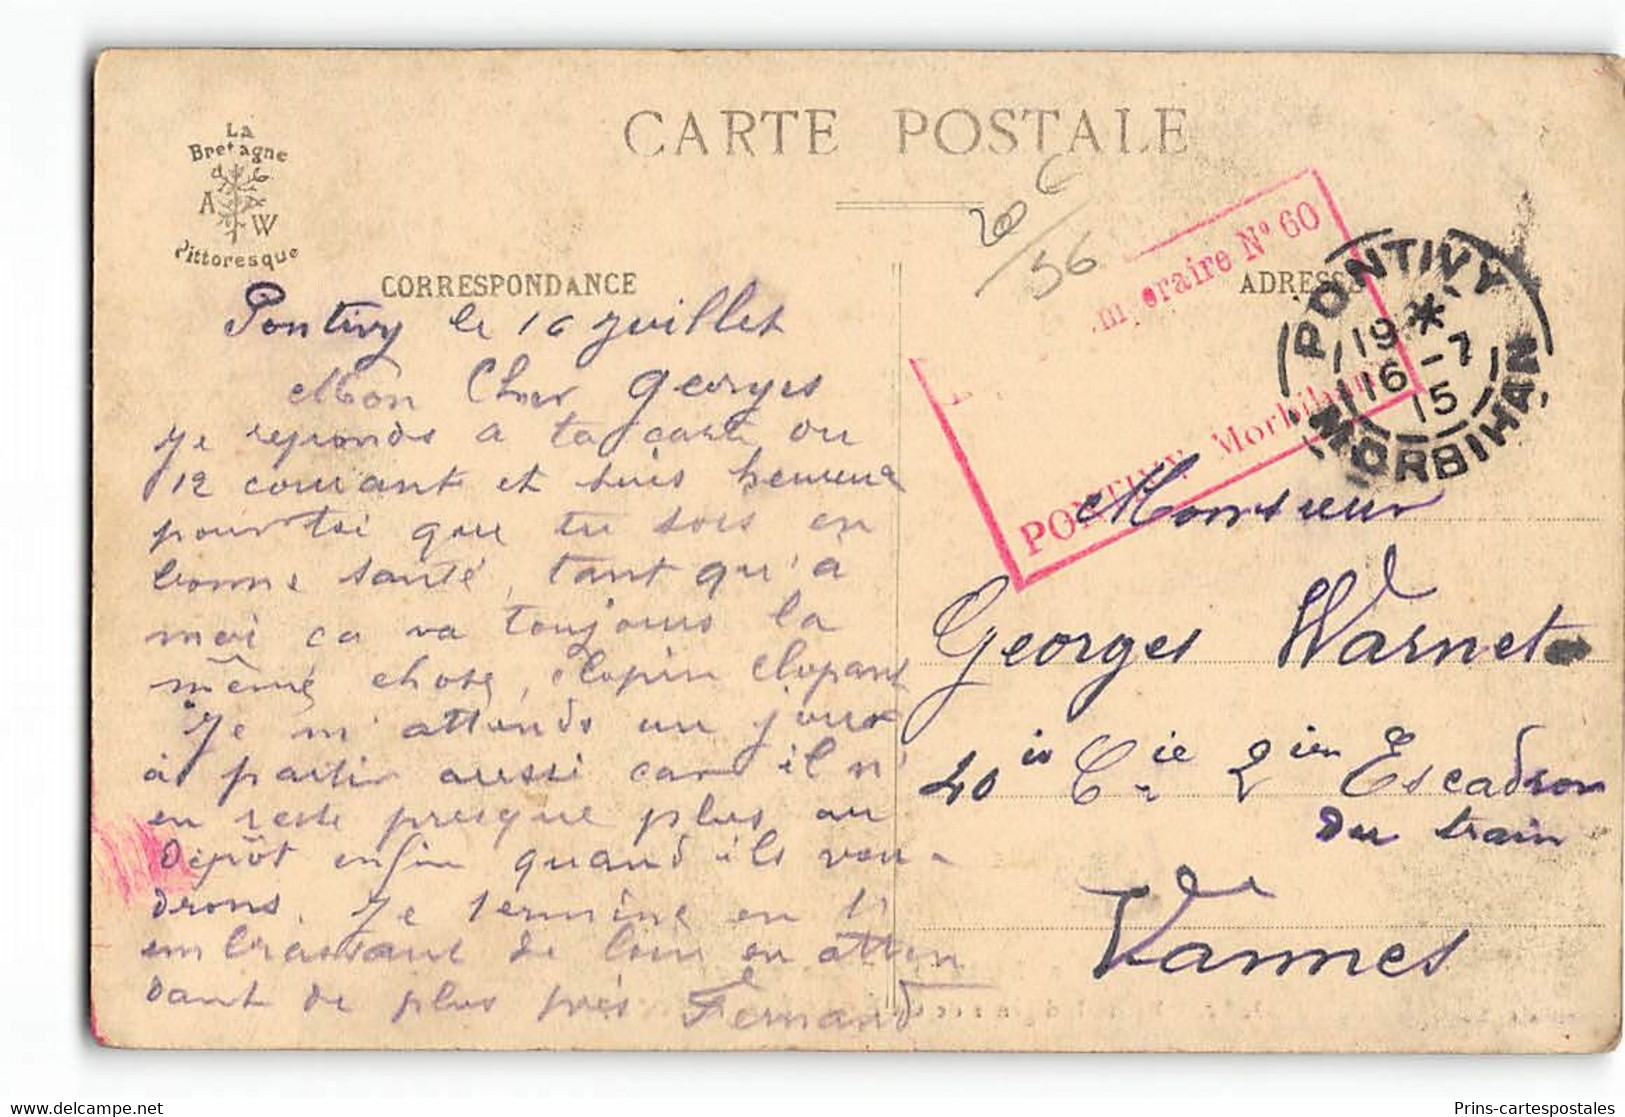 CARTE POSTALE
La
Bretagne
d G
A W
Pittoresque
CORRESPONDANCE
ADRESSE
20 C
56
mporaire N° 60
PONTIVY Morbihan
PONTIVY
19 *
16-7
15
MORBIHAN
Pontivy le 16 Juillet
Mon Cher Georges
Je reponds a ta carte du
12 courant et suis heureux
pour toi que tu sois en
bonne santé, tant qu'a
moi ca va toujours la
même chose, clopin clopant
Je m'attends un jour
à partir aussi car il n'
en reste presque plus au
Dépôt enfin quand ils vou-
drons. Je termine en t'
embrassant de loin en atten
dant de plus près Fernand
Monsieur
Georges Warnet
40 Cie 2ien Escadron
du train
Vannes
Prins-cartespostales
www.delcampe.net